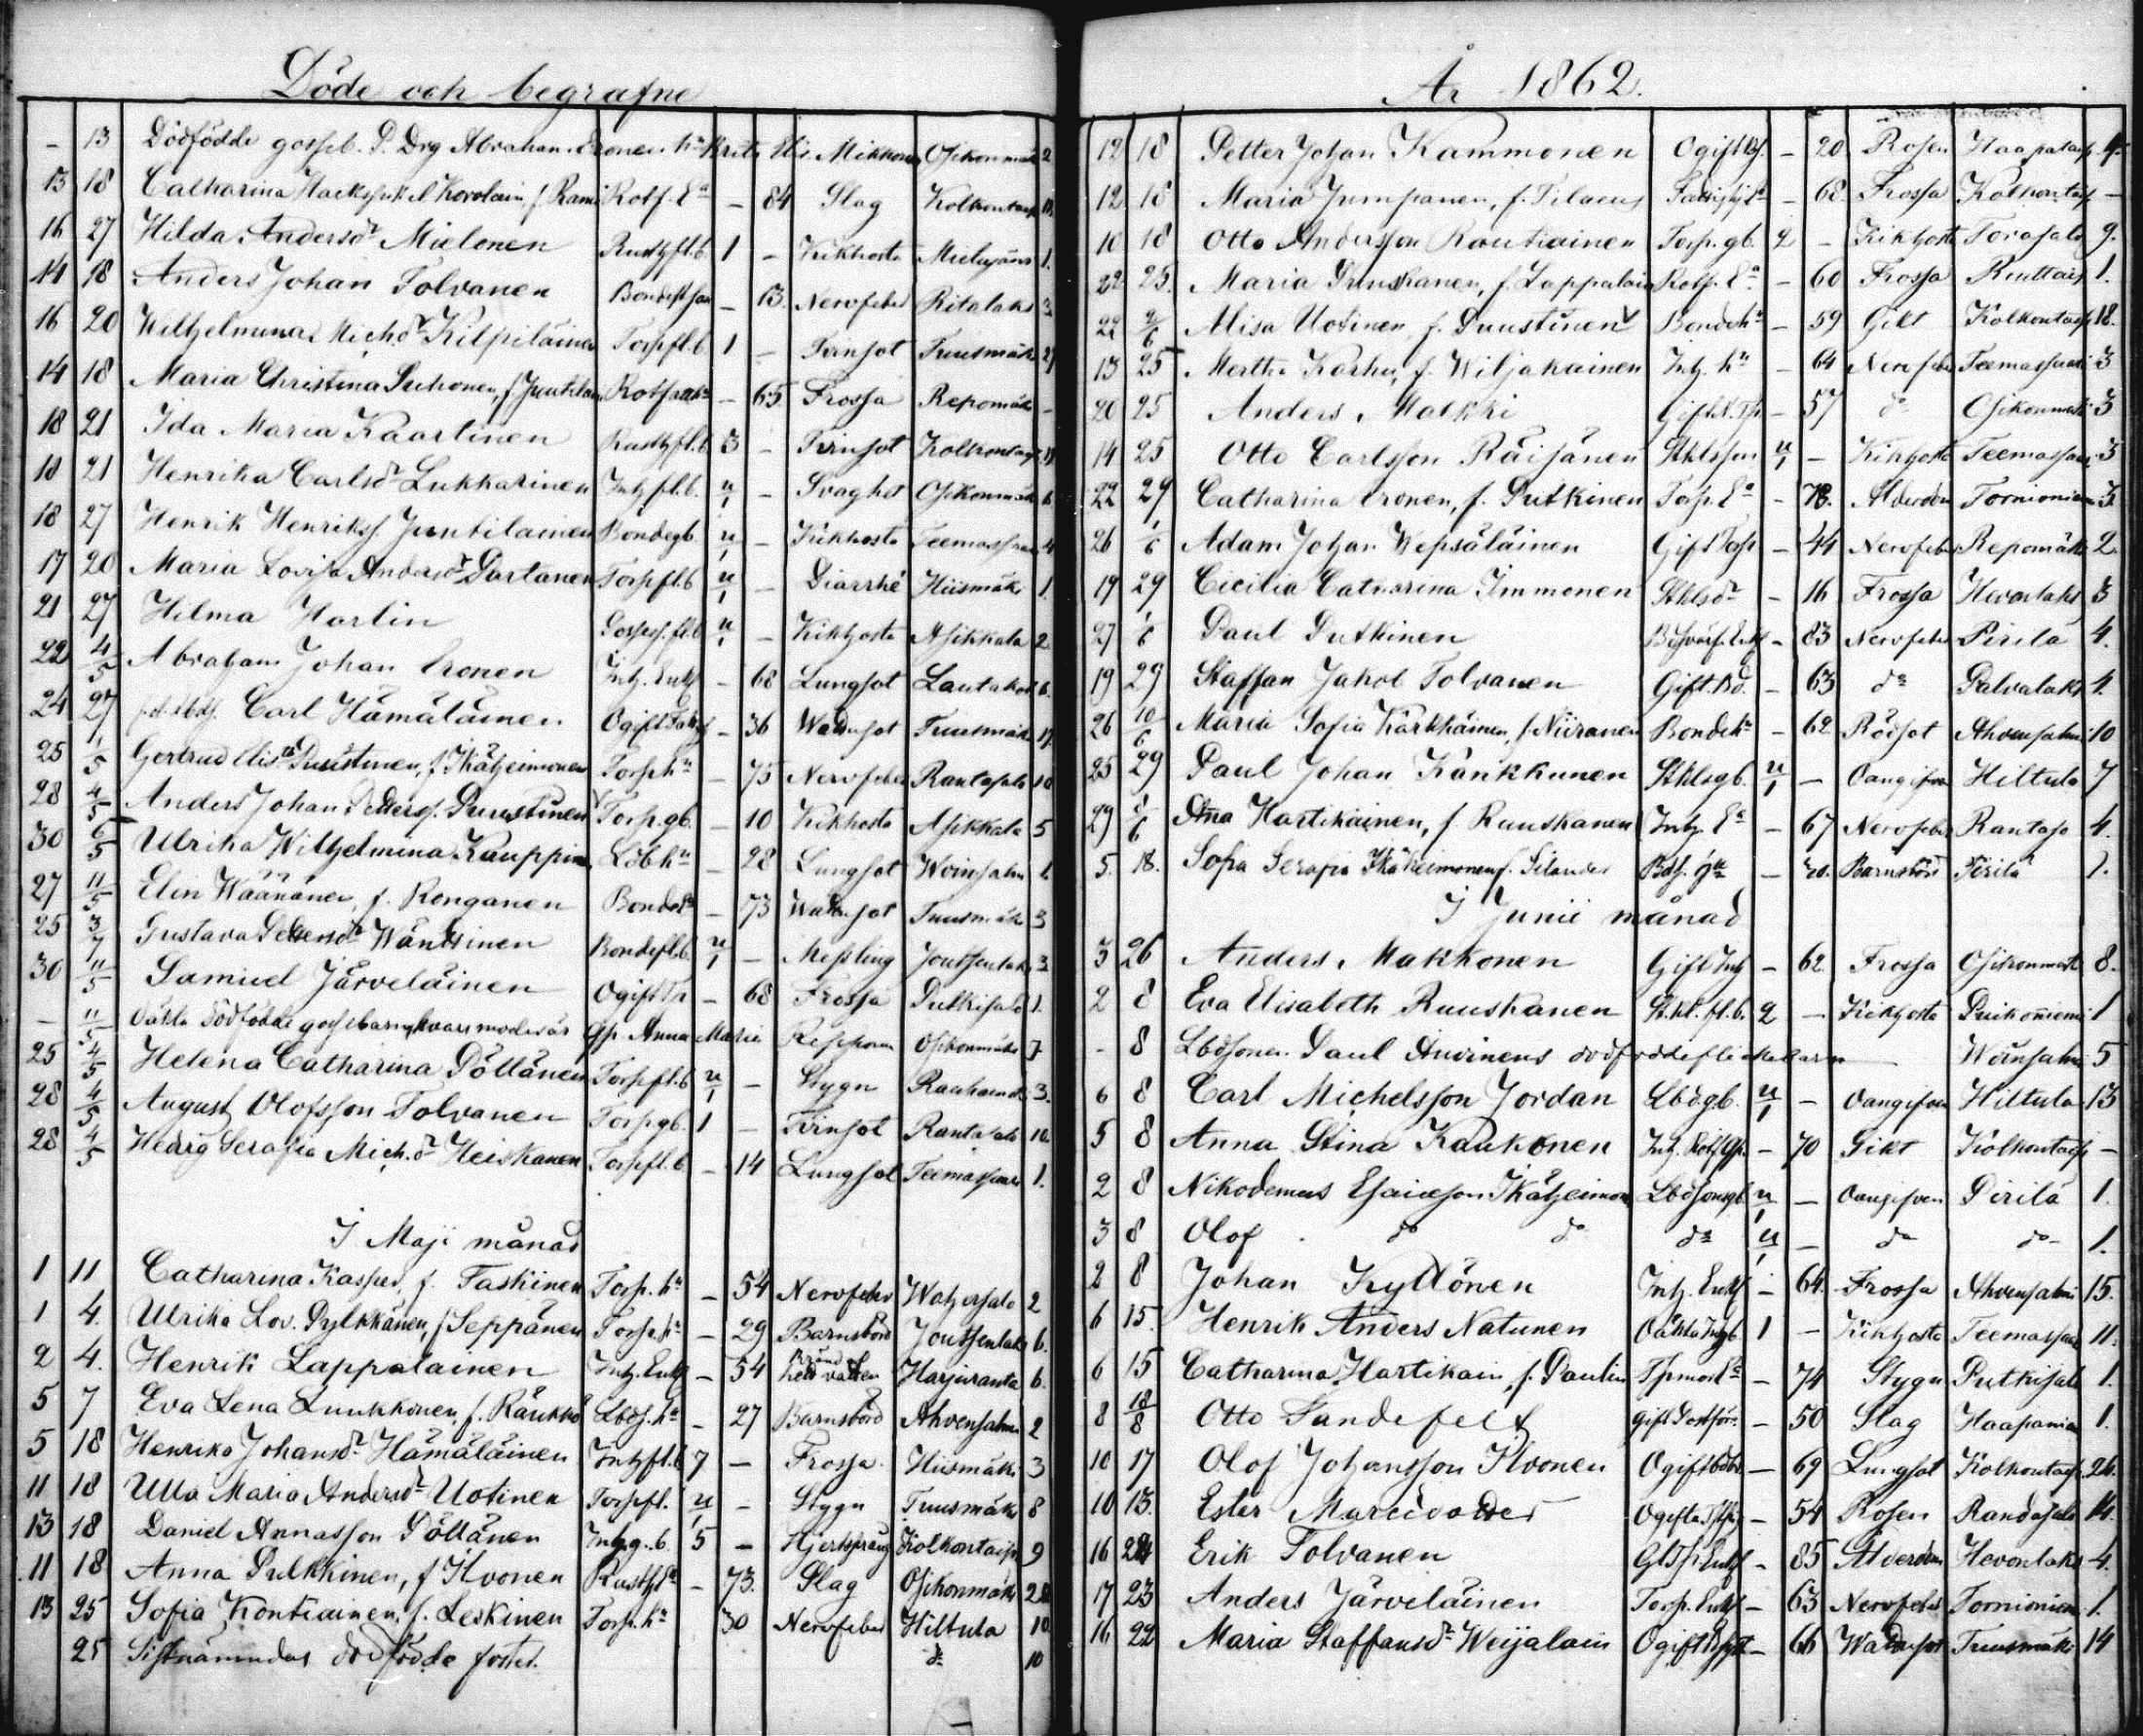 Döde och begrafne
– 13 Dödfödde gosseb. P. Drg Abraham Eronen hu Brita Elis. Mikkonen Osikonmäki 2
13 18 Catharina f. Rotf. Ea – 84 Slag Kolkontaip.
16 27 Hilda Andersdr Mielonen Rusth.fl.b. 1 – Kikhosta 1.
14 18 Anders Johan Tolvanen Bondes son – 13. Nervfeber Ritalaks 3
16 20 Wilhelmina Mich.dr Kilpiläinen Torp.fl.b 1 – Tvinsot Tuusmäki 27
14 18 Maria Christina Suhonen, f. Juntilain – 65 Frossa Repomäki –
18 21 Ida Maria Kaartinen Rusth.fl.b. 3 – Tvinsot Kolkontaip.
18 21 Henrika Carlsdr Lukkarinen Inh.fl.b. u/1 – Svaghet Osikonmäki 6
18 27 Henrik Henrikss. Juntilainen Bondegb. u/1 – Kikhosta Teemassaari 4
17 20 Maria Lovisa Andersdr Partanen Torp.fl.b u/1 – Diarrhé Hiismäki 1.
21 27 Hilma Harlin u/1 – Kikhosta Asikkala 2
22 4/5 Abraham Johan Eronen Inh. Enkl – 68 Lungsot Lautakot. 6.
24 27 Carl Hämäläinen Ogift – 36 Wattusot Tuusmäki
25 1/5 Gertrud Elis. Puustinen, f. Ikäheimonen Torp.hu – 75 Nervfeber Rantasalo 10
28 4/5 Anders Johan Petterss. Puustinen Torp.gb. – 10 Kikhosta Asikkala 5
30 6/5 Ulrika Wilhelmina Kauppin. Lösk.hu – 28 Lungsot Woinsalmi 1.
27 11/5 Elin Wäänänen, f. Ronganen Bonded. – 73 Wattusot Tuusmäki 3
25 3/7 Gustava Pettersdr Wänttinen Bondefl.b. u/1 – Messling Joutsenlaks 3
30 11/5 Samuel Järveläinen Ogift Dr – 68 Frossa Putkisalo 1.
– 11/5 Oäkta dödfödde gossebarn, hvars moder är Gp. Anna Maria Reipponen Osikonmäki 7
25 4/5 Helena Catharina Pöllänen Torp.fl.b u/1 – Stygn 3.
28 4/5 August Olofsson Tolvanen Torp.gb. 1 – Tvinsot Rantasalo 10.
28 4/5 Hedvig Serafia Mich.dr Heiskanen Torp.fl.b – 14 Lungsot Teemassaari 1.
I Maji månad
1 11 Catharina Kasper, f. Taskinen Torp.hu – 54 Nervfeber Wahersalo 2
1 4. Ulrika Lov. Pylkkänen, f. Seppänen Torp.hu – 29 Barnsbörd Joutsenlaks 6.
2 4. Henrik Lappalainen Inh. Enkl – 54 Bränd hett vatten Harjuranta 6.
5 7 Eva Lena Luukkonen, f. Räukkö Lbdf. hu – 27 Barnsbörd Ahvensalmi 2
5 18 Henrika Johansdr Hämäläinen Inh.fl.b 7 – Frossa Hiismäki 3
11 18 Ulla Maria Andersdr Uotinen Torpfl. u/1 – Stygn Tuusmäki 8
13 18 Daniel Annasson Pöllänen Inh.g.b. 5 – Hjertsprång Kolkontaip. 9
11 18 Anna Pulkkinen, f. Ilvonen Rusth.Ea – 73. Slag Osikonmäki
13 25 Sofia Kontiainen, f. Leskinen Torp. hu 30 Nervfeber Hiltula 10.
25 Sistnämndas dödfödde foster. do 10
År 1862.
12 18 Petter Johan Kammonen Ogift – 20 Rosen Haapataip. 4.
12 18 Maria Jumpanen, f. Tilaeus – 68 Frossa Kolkontaip. –
10 18 Otto Andersson Rautiainen Torp. gb. 2 – Kikhosta Torasalo 9.
22 25. Maria Ruuskanen, f. Lappalain Rotf. Ea – 60 Frossa 1.
22 2/6 Alisa Uotinen, f. Puustinen Bondehu – 59 Gikt Kolkontaip. 18.
13 25 Martha Karhu, f. Wiljakainen Inh. hu – 64 Nervfeber Teemassaari 3
20 25 Anders Malkki Gift – 57 do Osikonmäki 3
14 25 Otto Carlsson Räisänen Sthlsson u/1 – Kikhosta Teemassaari 3
22 29 Catharina Eronen, f. Putkinen Torp. Ea – 78. Ålderdom Tornioniemi 3.
26 1/6 Adam Johan Wepsäläinen Gift Torp – 44 Nervfeber Repomäki 2
19 29 Cicilia Catharina Immonen Sthlsdr – 16 Frossa Hevonlaks 3
27 1/6 Paul Putkinen – 83 Nervfeber Pirilä 4.
19 29 Staffan Jakob Tolvanen Gift. Bd. – 63 do Palvalaks 4.
26 10/6 Maria Sofia Karkkainen, f. Niiranen Bondehu – 62 Rödsot Ahvensalmi 10
25 29 Paul Johan Kankkunen Sthlsgb. u/1 – Oangifven Hiltula 7
29 8/6 Anna Hartikainen, f. Ruuskanen Inh. Ea – 67 Nervfeber Rantasa 4.
5. 18. Sofia Serafia Ikäheimonen f. Silander – Barnsbörd Pirilä 1.
I Junii månad
3 26 Anders Makkonen Gift Inh – 62 Frossa Osikonmäki 8.
2 8 Eva Elisabeth Ruuskanen St.kl. fl.b. 2 – Kikhosta Puikoniemi 1
– 8 Lbdsonen Paul Auvinens dödfödde flickebarn – Woinsalmi 5
6 8 Carl Michelsson Jordan Lbdgb. u/1 – Oangifven Hiltula 13
5 8 Anna Stina Kaukonen – 70 Gikt Kolkontaip –
2 8 Nikodemus Esaiasson Ikäheimon. Lbdsonsgb u/1 – Oangifven Pirilä 1.
3 8 Olof do do do u/1 – do do 1.
2 8 Johan Kyllönen Inh. Enkl – 64. Frossa Ahvensalmi 15.
6 15. Henrik Anders Natunen Oäkta Inhgb 1 – Kikhosta Teemassaari 11.
6 15 Catharina Hartikain, f. Paulin – 74 Stygn Putkisalo 1.
8 18/8 Otto Sandefelt Gift – 50 Slag Haapaniemi 1.
10 17 Olof Johansson Ilvonen Ogift – 69 Lungsot Kolkontaip. 26.
10 13. Ester – 54 Rosen Randasalo 14.
16 22 Erik Tolvanen – 85 Ålderdom Hevonlaks 4.
17 23 Anders Järveläinen Torp. Enkl – 63 Nervfeber Tornioniemi 1.
16 22 Maria Staffansdr Weijalain Ogift – 66 Wattusot Tuusmäki 14